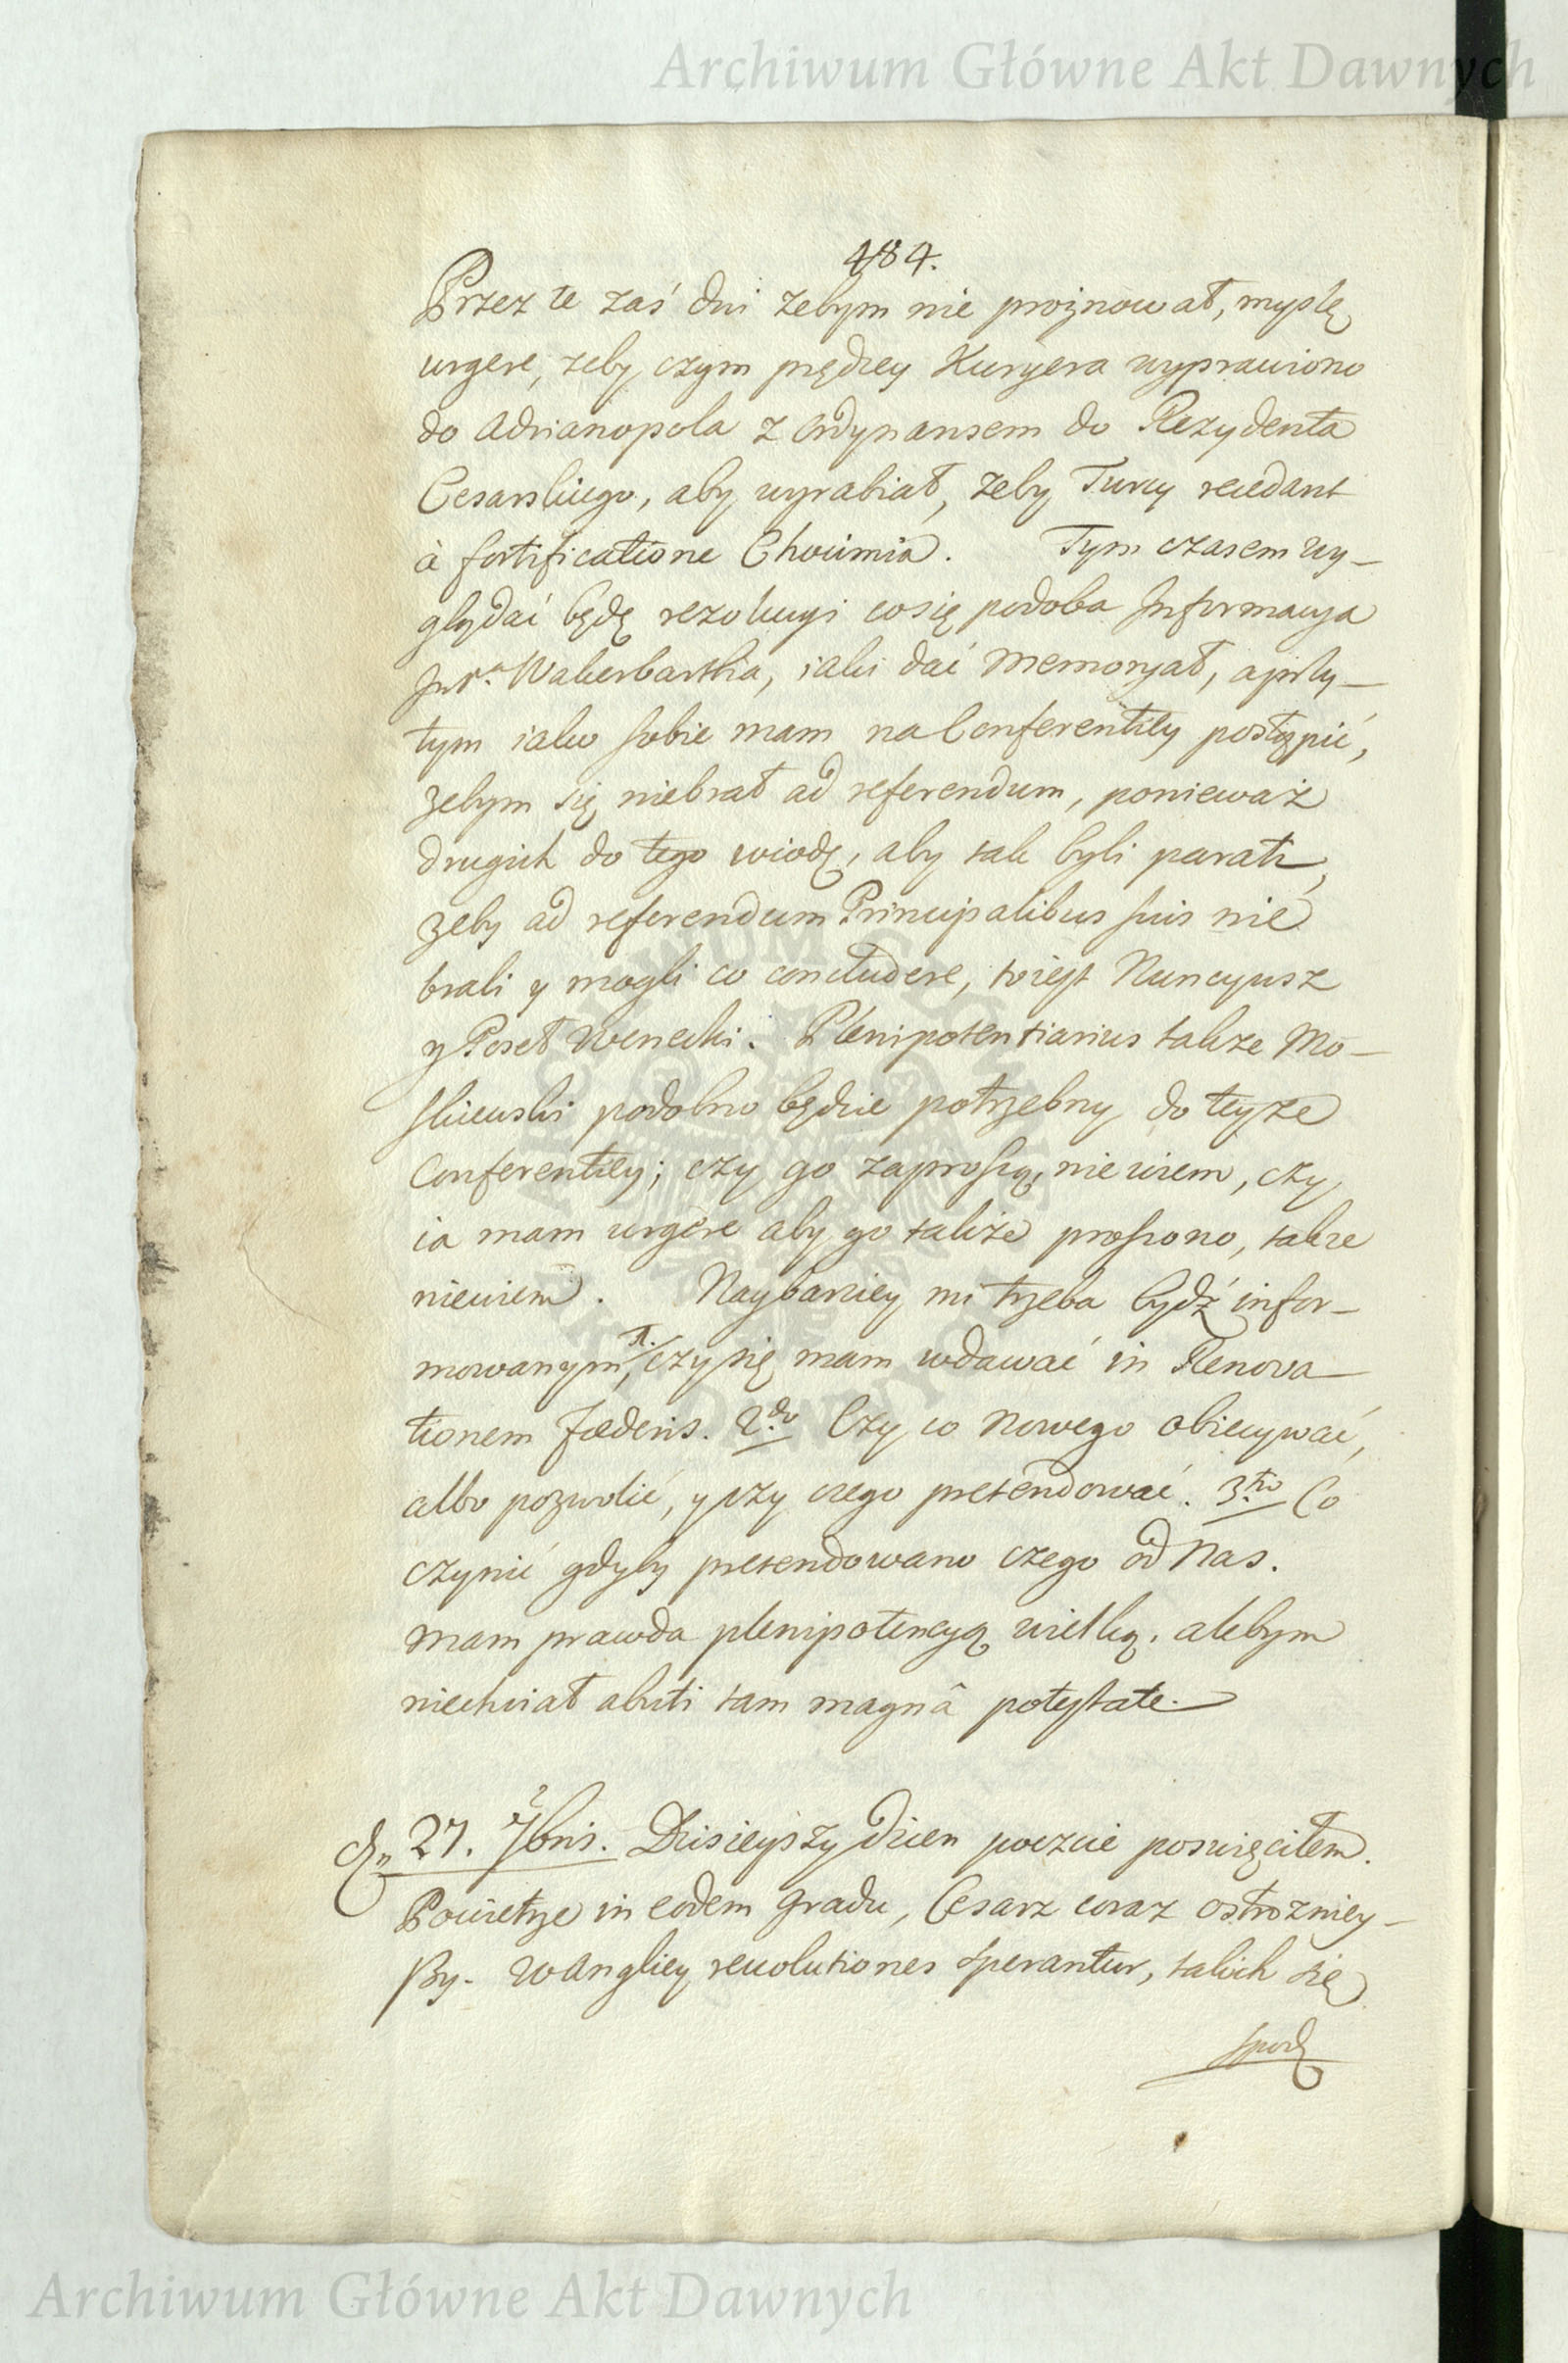 Archiwum Główne Akt Dawnych
484.
Przez te zaś dni żebym nie proznował, myslę
urgere, żeby czym prędzey Kuryera wyprawiono
do Adrianopola z Ordynansem do Rezydenta
Cesarskiego, aby wyrabiał, żeby Turcy recedant
à fortificatione Chocimia. Tym czasem wy-
glądać będę rezolucyi co się podoba Informacya
Wakerbartha, iaki dać Memoryał, a przy-
tym iako sobie mam na Conferentiey postąpić,
żebym się nie brał ad referendum, ponieważ
drugich do tego wiodę, aby tak byli parati,
żeby ad referendum Principalibus suis nie
brali y mogli co concludere, to iest Nuncyusz
y Poseł Wenecki. Plenipotentiarius także Mo-
skiewski podobno będzie potrzebny do teyże
Conferentiey; czy go zaproszą, nie wiem, czy
ia mam urgere aby go także proszono, także
niewiem. Naybarziey mi trzeba bydź infor-
mowanym, czy się mam wdawać in Renova-
tionem Fœderis. 2.do Czy co nowego obiecywać,
albo pozwolić, y czy czego pretendować. 3.tio Co
czynić gdyby pretendowano czego od Nas.
Mam prawda plenipotencyą wielką, alebym
niechciał abuti tam magnâ potestate.
27. 7bris. Dzisieyszy dzien poczcie poswięciłem.
Powietrze in eodem gradu, Cesarz coraz ostrozniey-
szy. W Angliey revolutiones sperantur, takich się
spod
Archiwum Główne Akt Dawnych